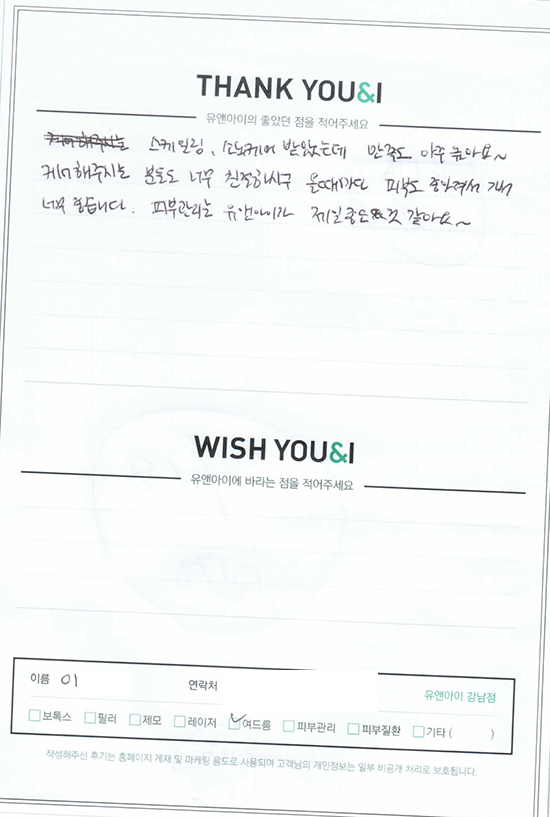 THANK YOU&I
유앤아이의 좋았던 점을 적어주세요
케어해주시는 스케일링, 소노케어 받았는데 만족도 아주 높아요~
케어해주시는 분들도 너무 친절하시구 올때마다 피부도 좋아져서 가서
너무 좋습니다. 피부관리는 유앤아이가 제일좋은 것 같아요~
WISH YOU&I
유앤아이에 바라는 점을 적어주세요
이름 이 연락처 유앤아이 강남점
보톡스 필러 제모 레이저 여드름 피부관리 피부질환 기타 ( )
작성해주신 후기는 홈페이지 게재 및 마케팅 용도로 사용되며 고객님의 개인정보는 일부 비공개 처리로 보호됩니다.